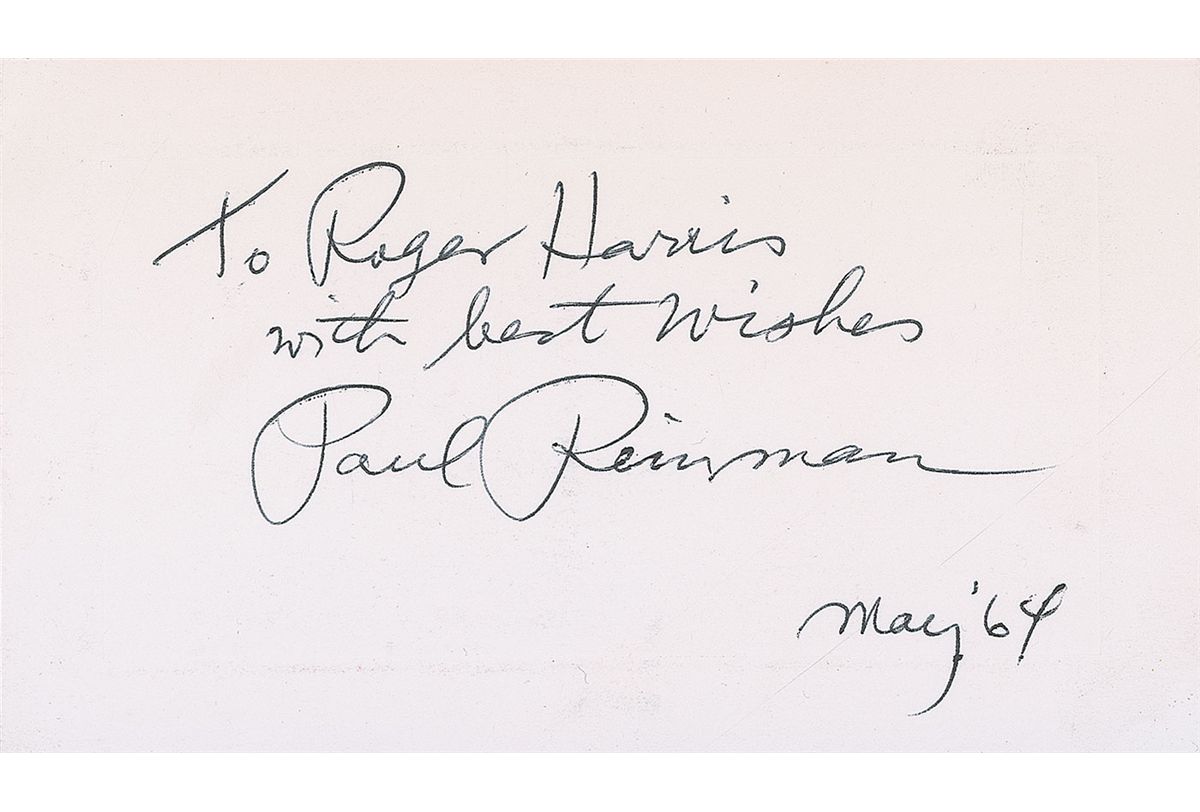 To Roger Harris
with best wishes
Paul Reinman
May '64